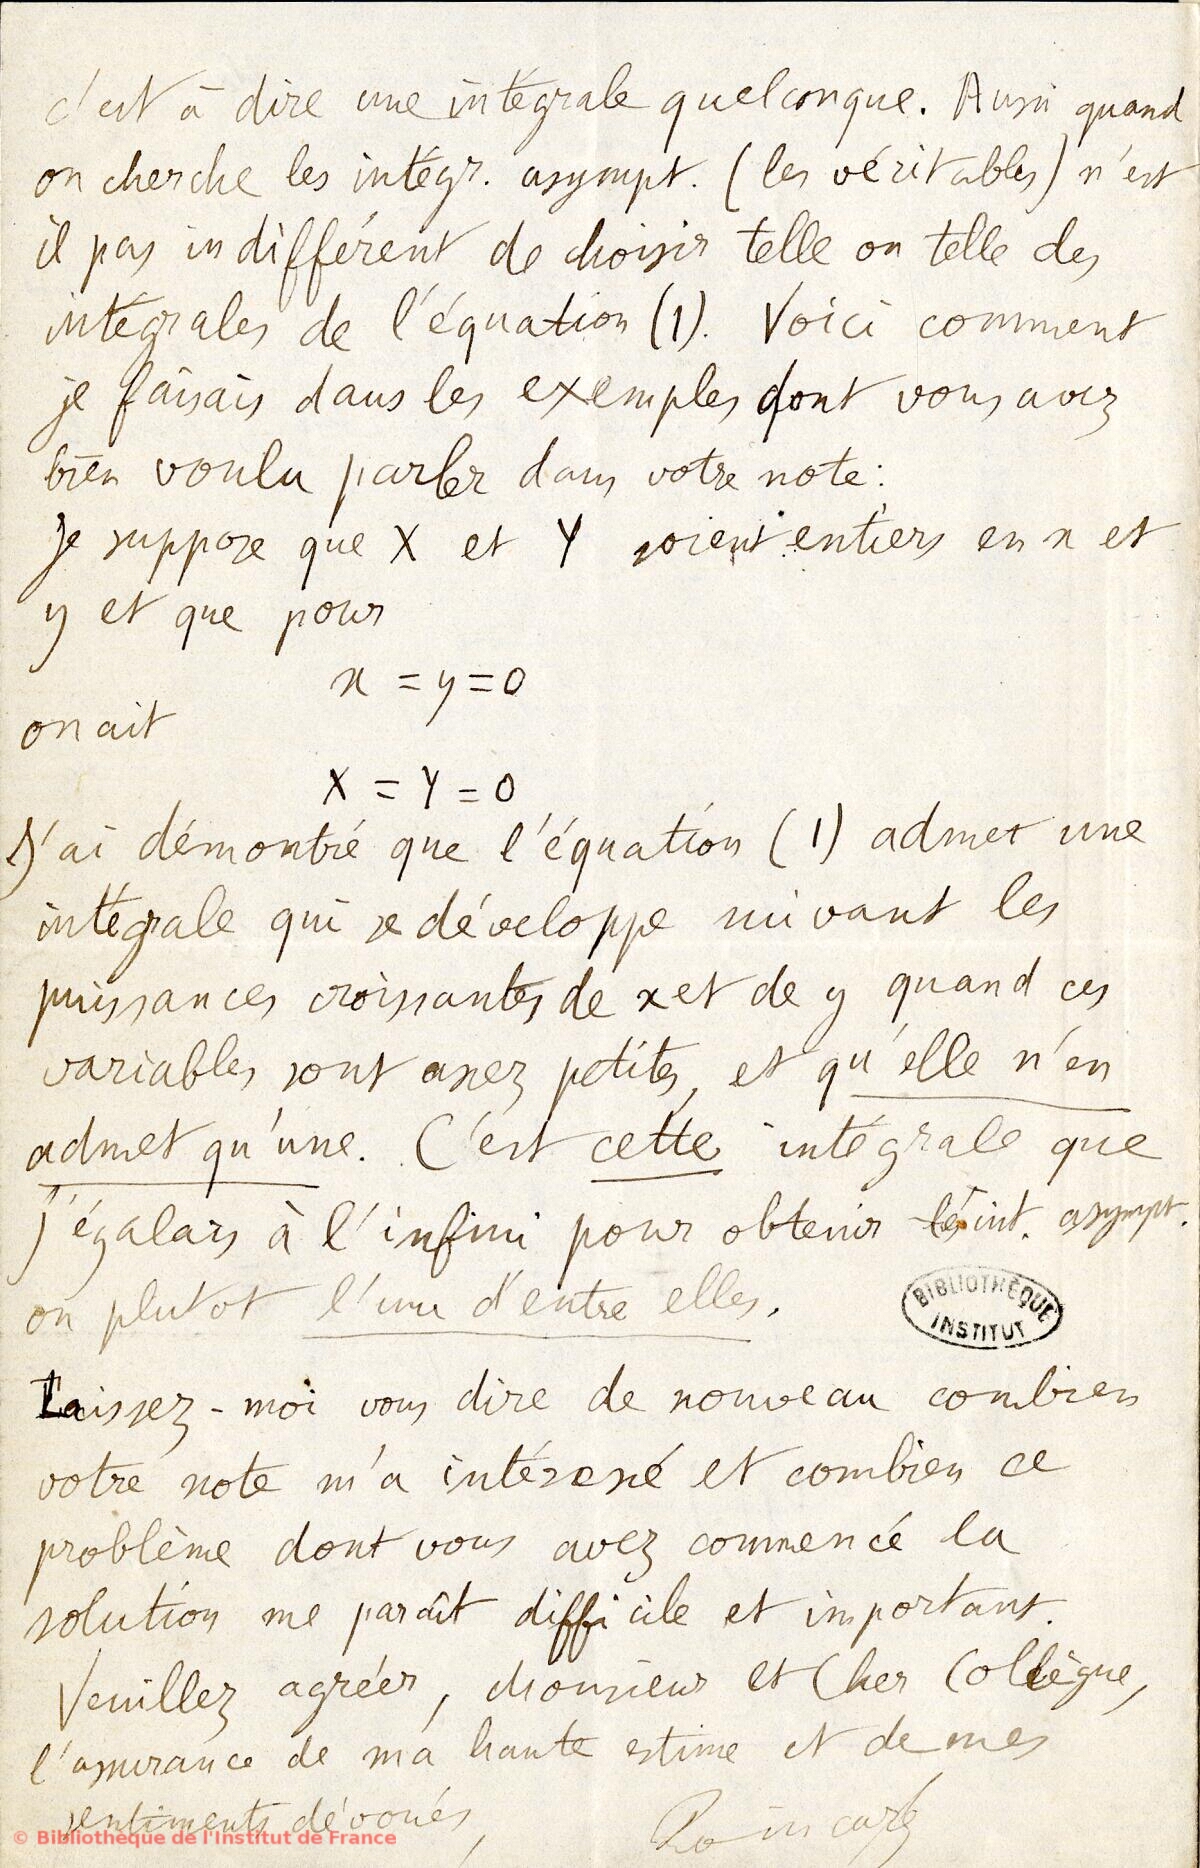 c'est à dire une intégrale quelconque. Aussi quand
on cherche les intégr. asympt. (les véritables) n'est
il pas indifférent de choisir telle ou telle des
intégrales de l'équation (1). Voici comment
je faisais dans les exemples dont vous avez
bien voulu parler dans votre note:
Je suppose que X et Y soient entiers en x et
y et que pour
x = y = 0
on ait
X = Y = 0
J'ai démontré que l'équation (1) admet une
intégrale qui se développe suivant les
puissances croissantes de x et de y quand ces
variables sont assez petites, et qu'elle n'en
admet qu'une. C'est cette intégrale que
j'égalais à l'infini pour obtenir les int. asympt.
ou plutot l'une d'entre elles.
BIBLIOTHÈQUE
INSTITUT
Laissez-moi vous dire de nouveau combien
votre note m'a intéressé et combien ce
problème dont vous avez commencé la
solution me paraît difficile et important.
Veuillez agréer, Monsieur et Cher Collègue,
l'assurance de ma haute estime et de mes
sentiments dévoués,
Poincaré
© Bibliothèque de l'Institut de France